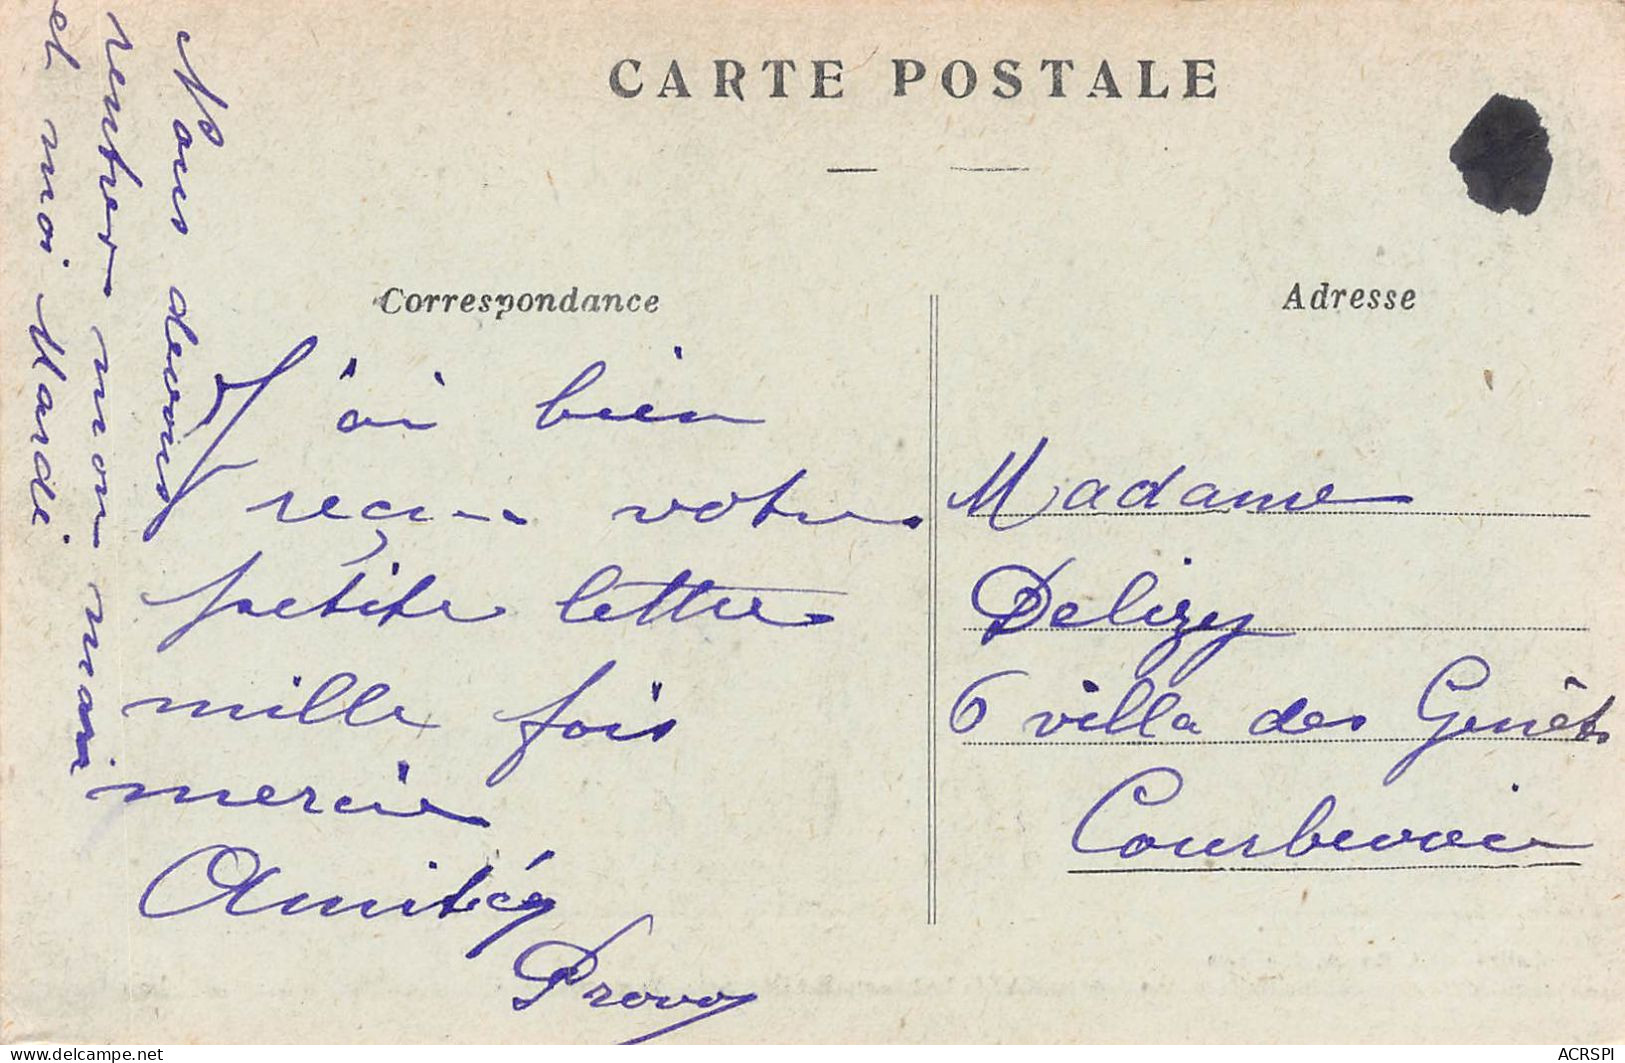 CARTE POSTALE
Correspondance
J'ai bien
reçu votre
petite lettre
mille fois
mercie
Amitiés
Provo
Nous devons
rentrer mon mari
et moi Mardi
Adresse
Madame
Delizy
6 villa des Genêts
Courbevoie
delcampe.net
ACRSPI